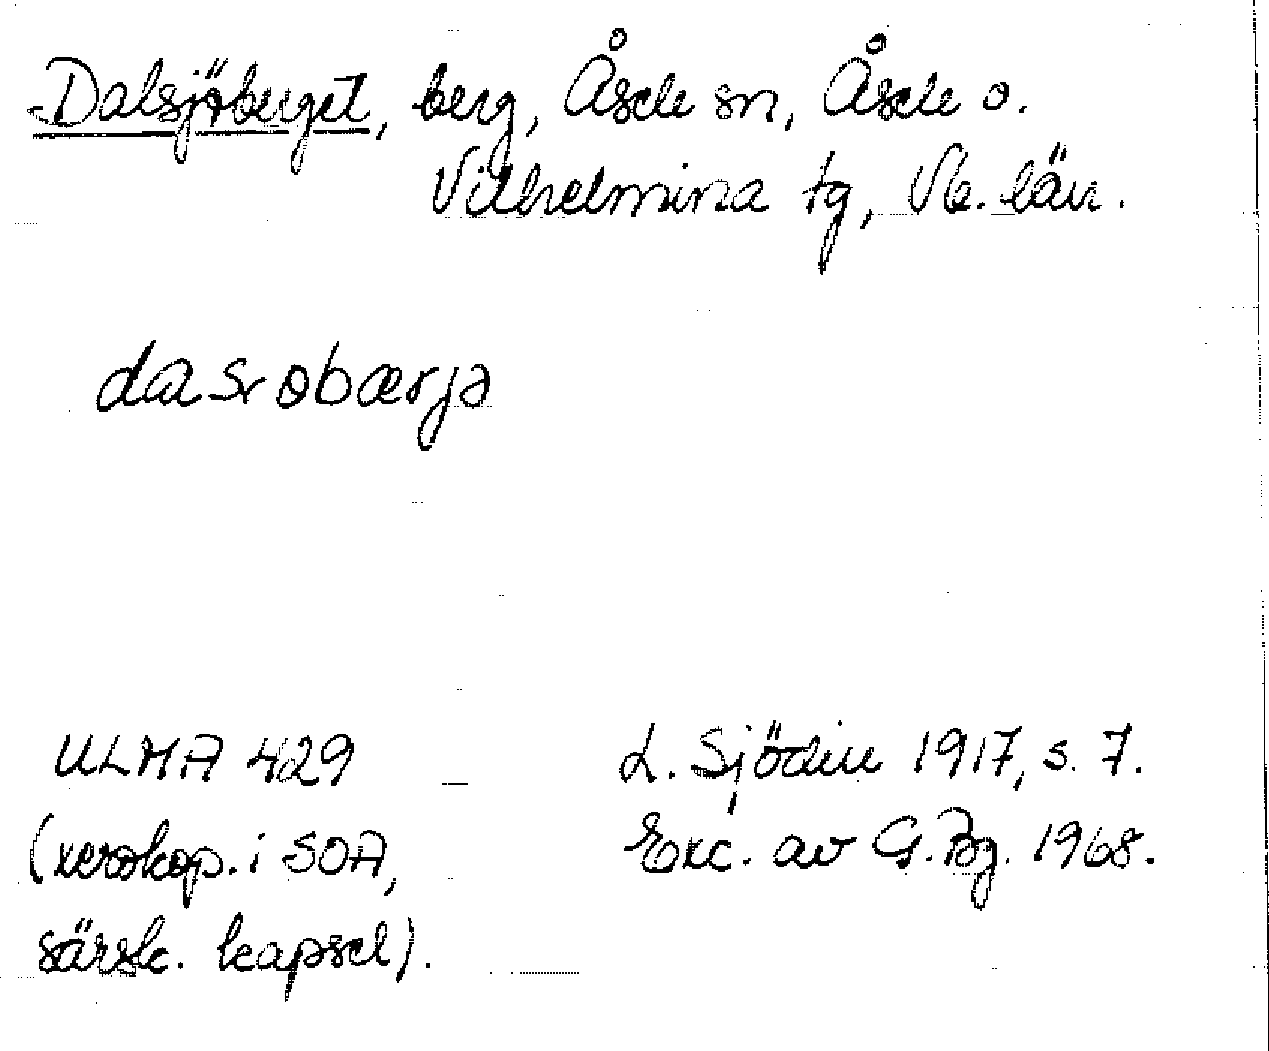 Dalsjöberget, berg, Åsele sn, Åsele o.
Vilhelmina tg, Vb. län.
dasrobærjə
ULMA 429 – L. Sjödin 1917, s. 7.
(xerokop. i SOA, Exc. av G. Bg. 1968.
särsk. kapsel).